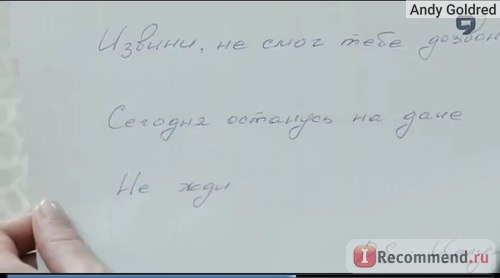 Andy Goldred
Извини, не смог тебе дозвон
Сегодня останусь на даче
Не жди
I Recommend.ru